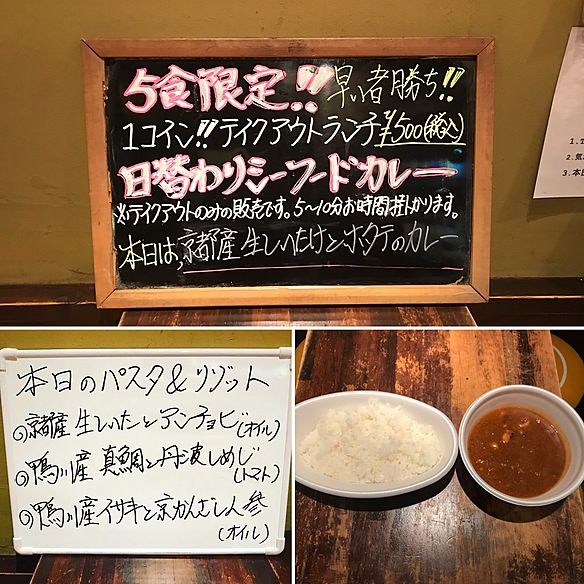 5食限定!! 早い者勝ち!!
1コイン!! テイクアウトランチ ¥500(税込)
日替わりシーフードカレー
※テイクアウトのみの販売です。5〜10分お時間掛かります。
本日は、京都産 生しいたけとホタテのカレー
1.
2.気
3.本日
本日のパスタ&リゾット
京都産 生しいたけとアンチョビ(オイル)
鴨川産 真鯛と丹波しめじ(トマト)
鴨川産 イサキと京かんざし人参(オイル)